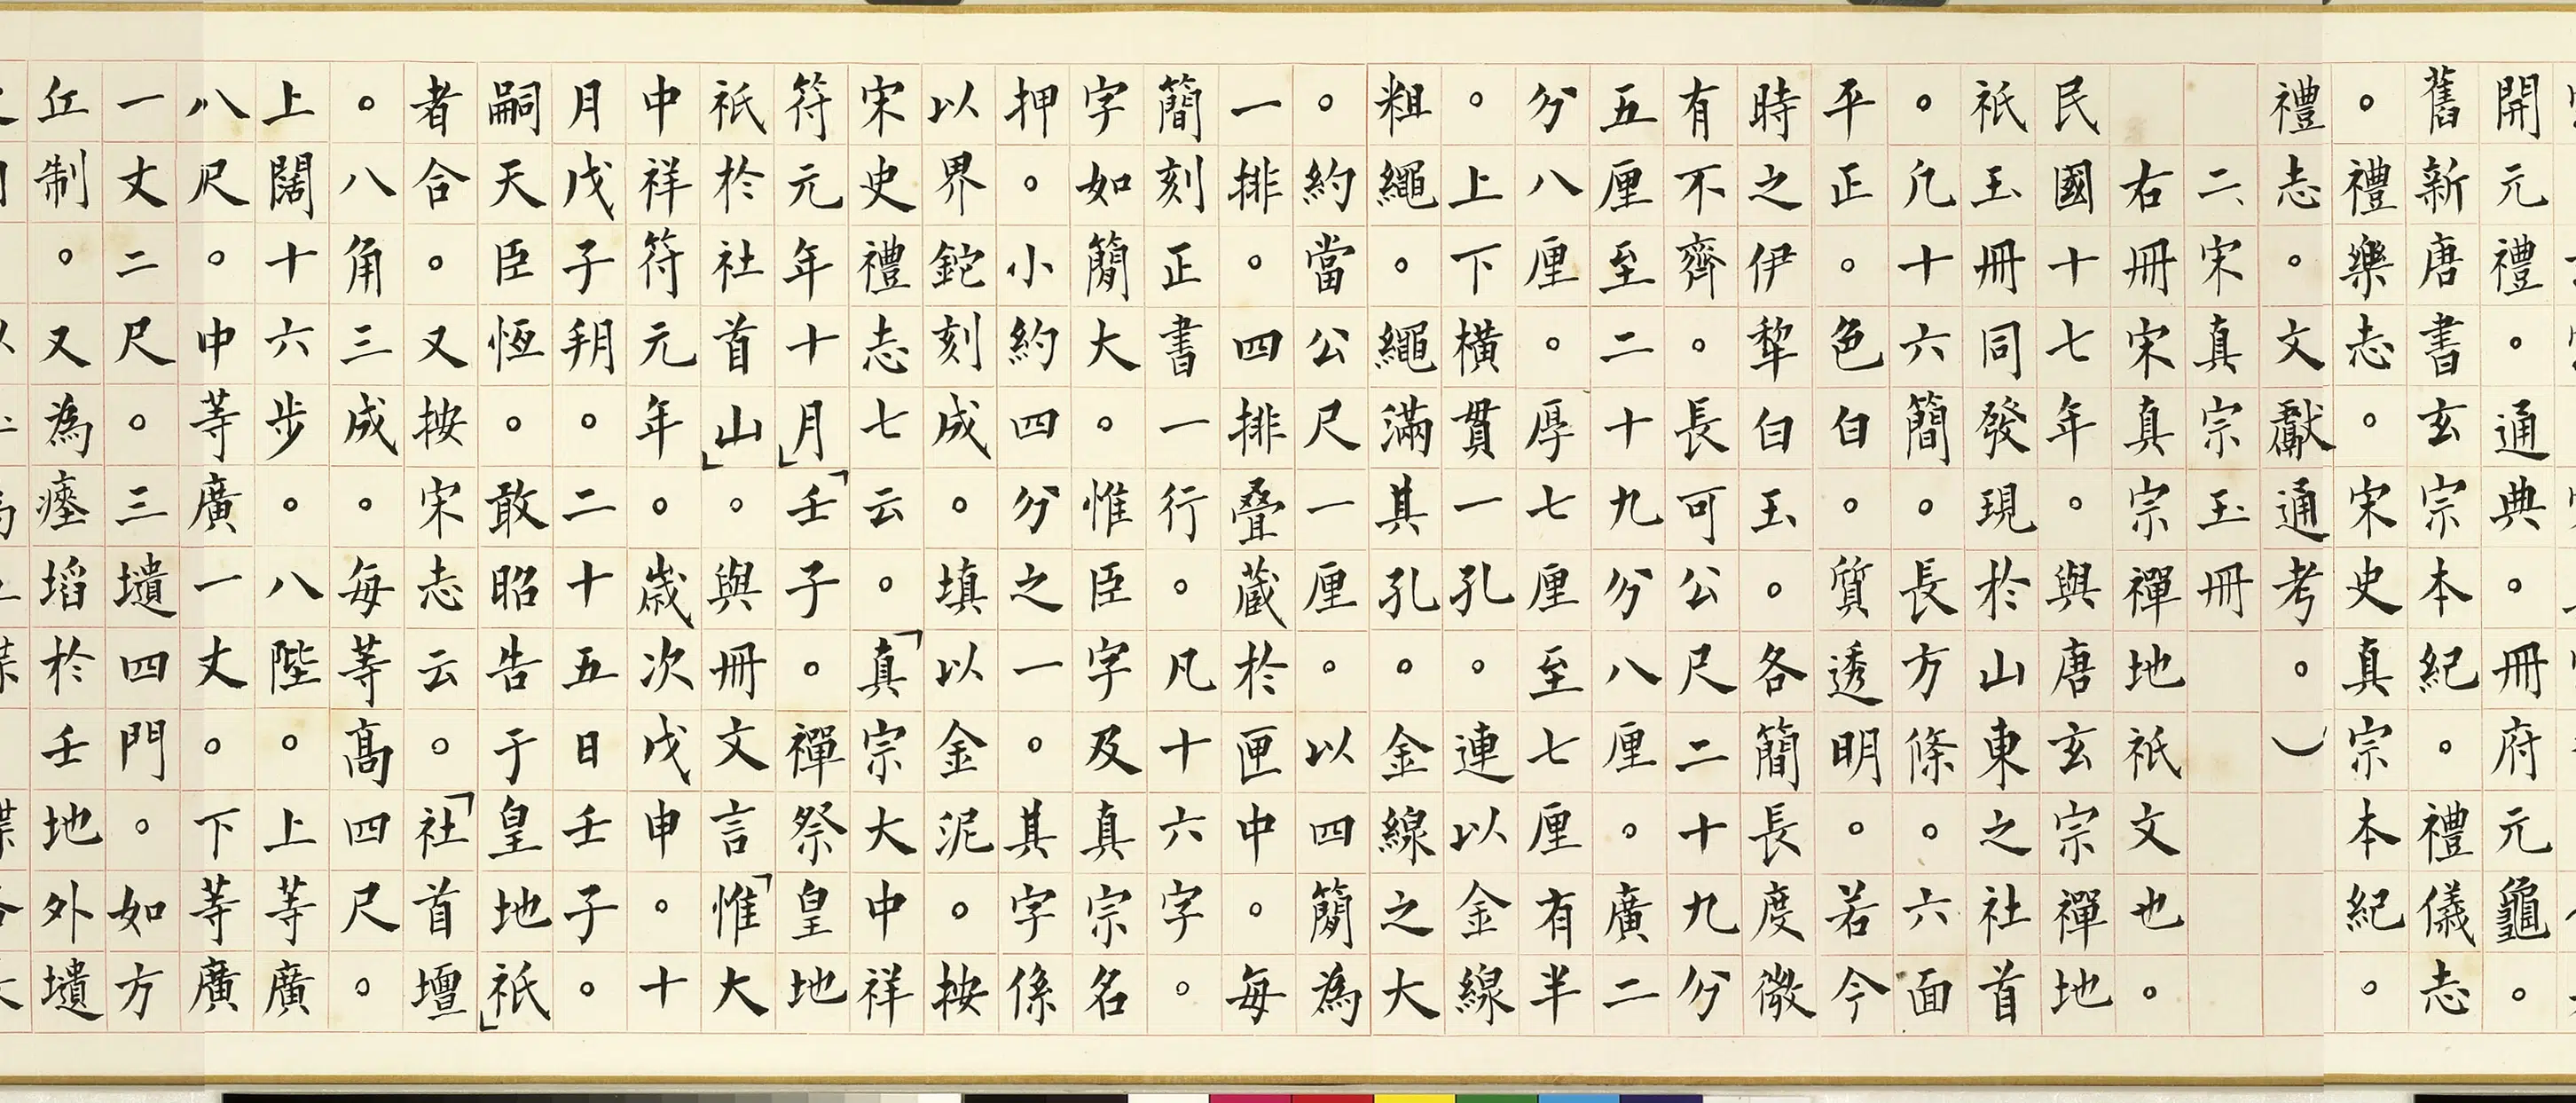 開元禮。通典。冊府元龜。
舊新唐書玄宗本紀。禮儀志
。禮樂志。宋史真宗本紀。
禮志。文獻通考。）
二、宋真宗玉冊
右冊宋真宗禪地祇文也。
民國十七年。與唐玄宗禪地
祇玉冊同發現於山東之社首
。凡十六簡。長方條。六面
平正。色白。質透明。若今
時之伊犂白玉。各簡長度微
有不齊。長可公尺二十九分
五厘至二十九分八厘。廣二
分八厘。厚七厘至七厘有半
。上下橫貫一孔。連以金線
粗繩。繩滿其孔。金線之大
。約當公尺一厘。以四簡為
一排。四排疊藏於匣中。每
簡刻正書一行。凡十六字。
字如簡大。惟臣字及真宗名
押。小約四分之一。其字係
以界鉈刻成。填以金泥。按
宋史禮志七云。「真宗大中祥
符元年十月」「壬子。禪祭皇地
祇於社首山」。與冊文言「惟大
中祥符元年。歲次戊申。十
月戊子朔。二十五日壬子。
嗣天臣恆。敢昭告于皇地祇」
者合。又按宋志云。「社首壇
。八角三成。每等高四尺。
上闊十六步。八陛。上等廣
八尺。中等廣一丈。下等廣
一丈二尺。三壝四門。如方
丘制。又為瘞埳於壬地外壝